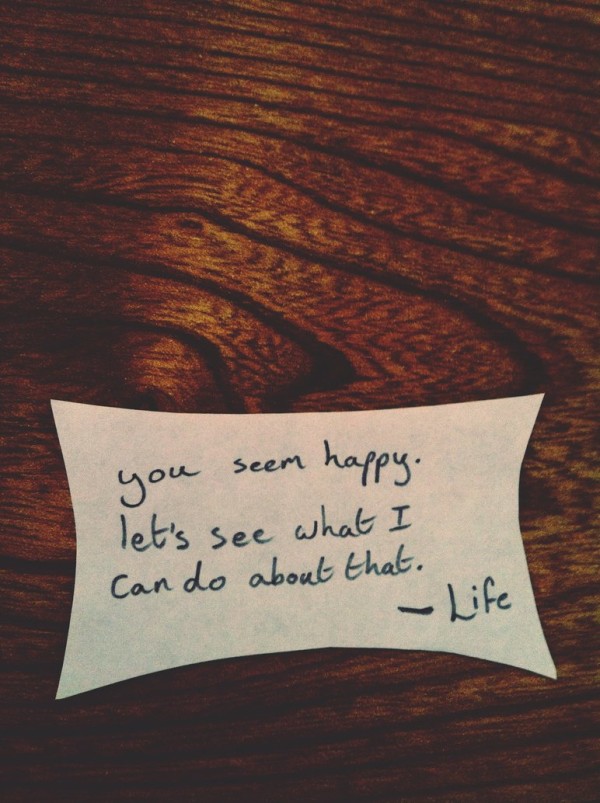 you seem happy.
let's see what I
can do about that.
– Life